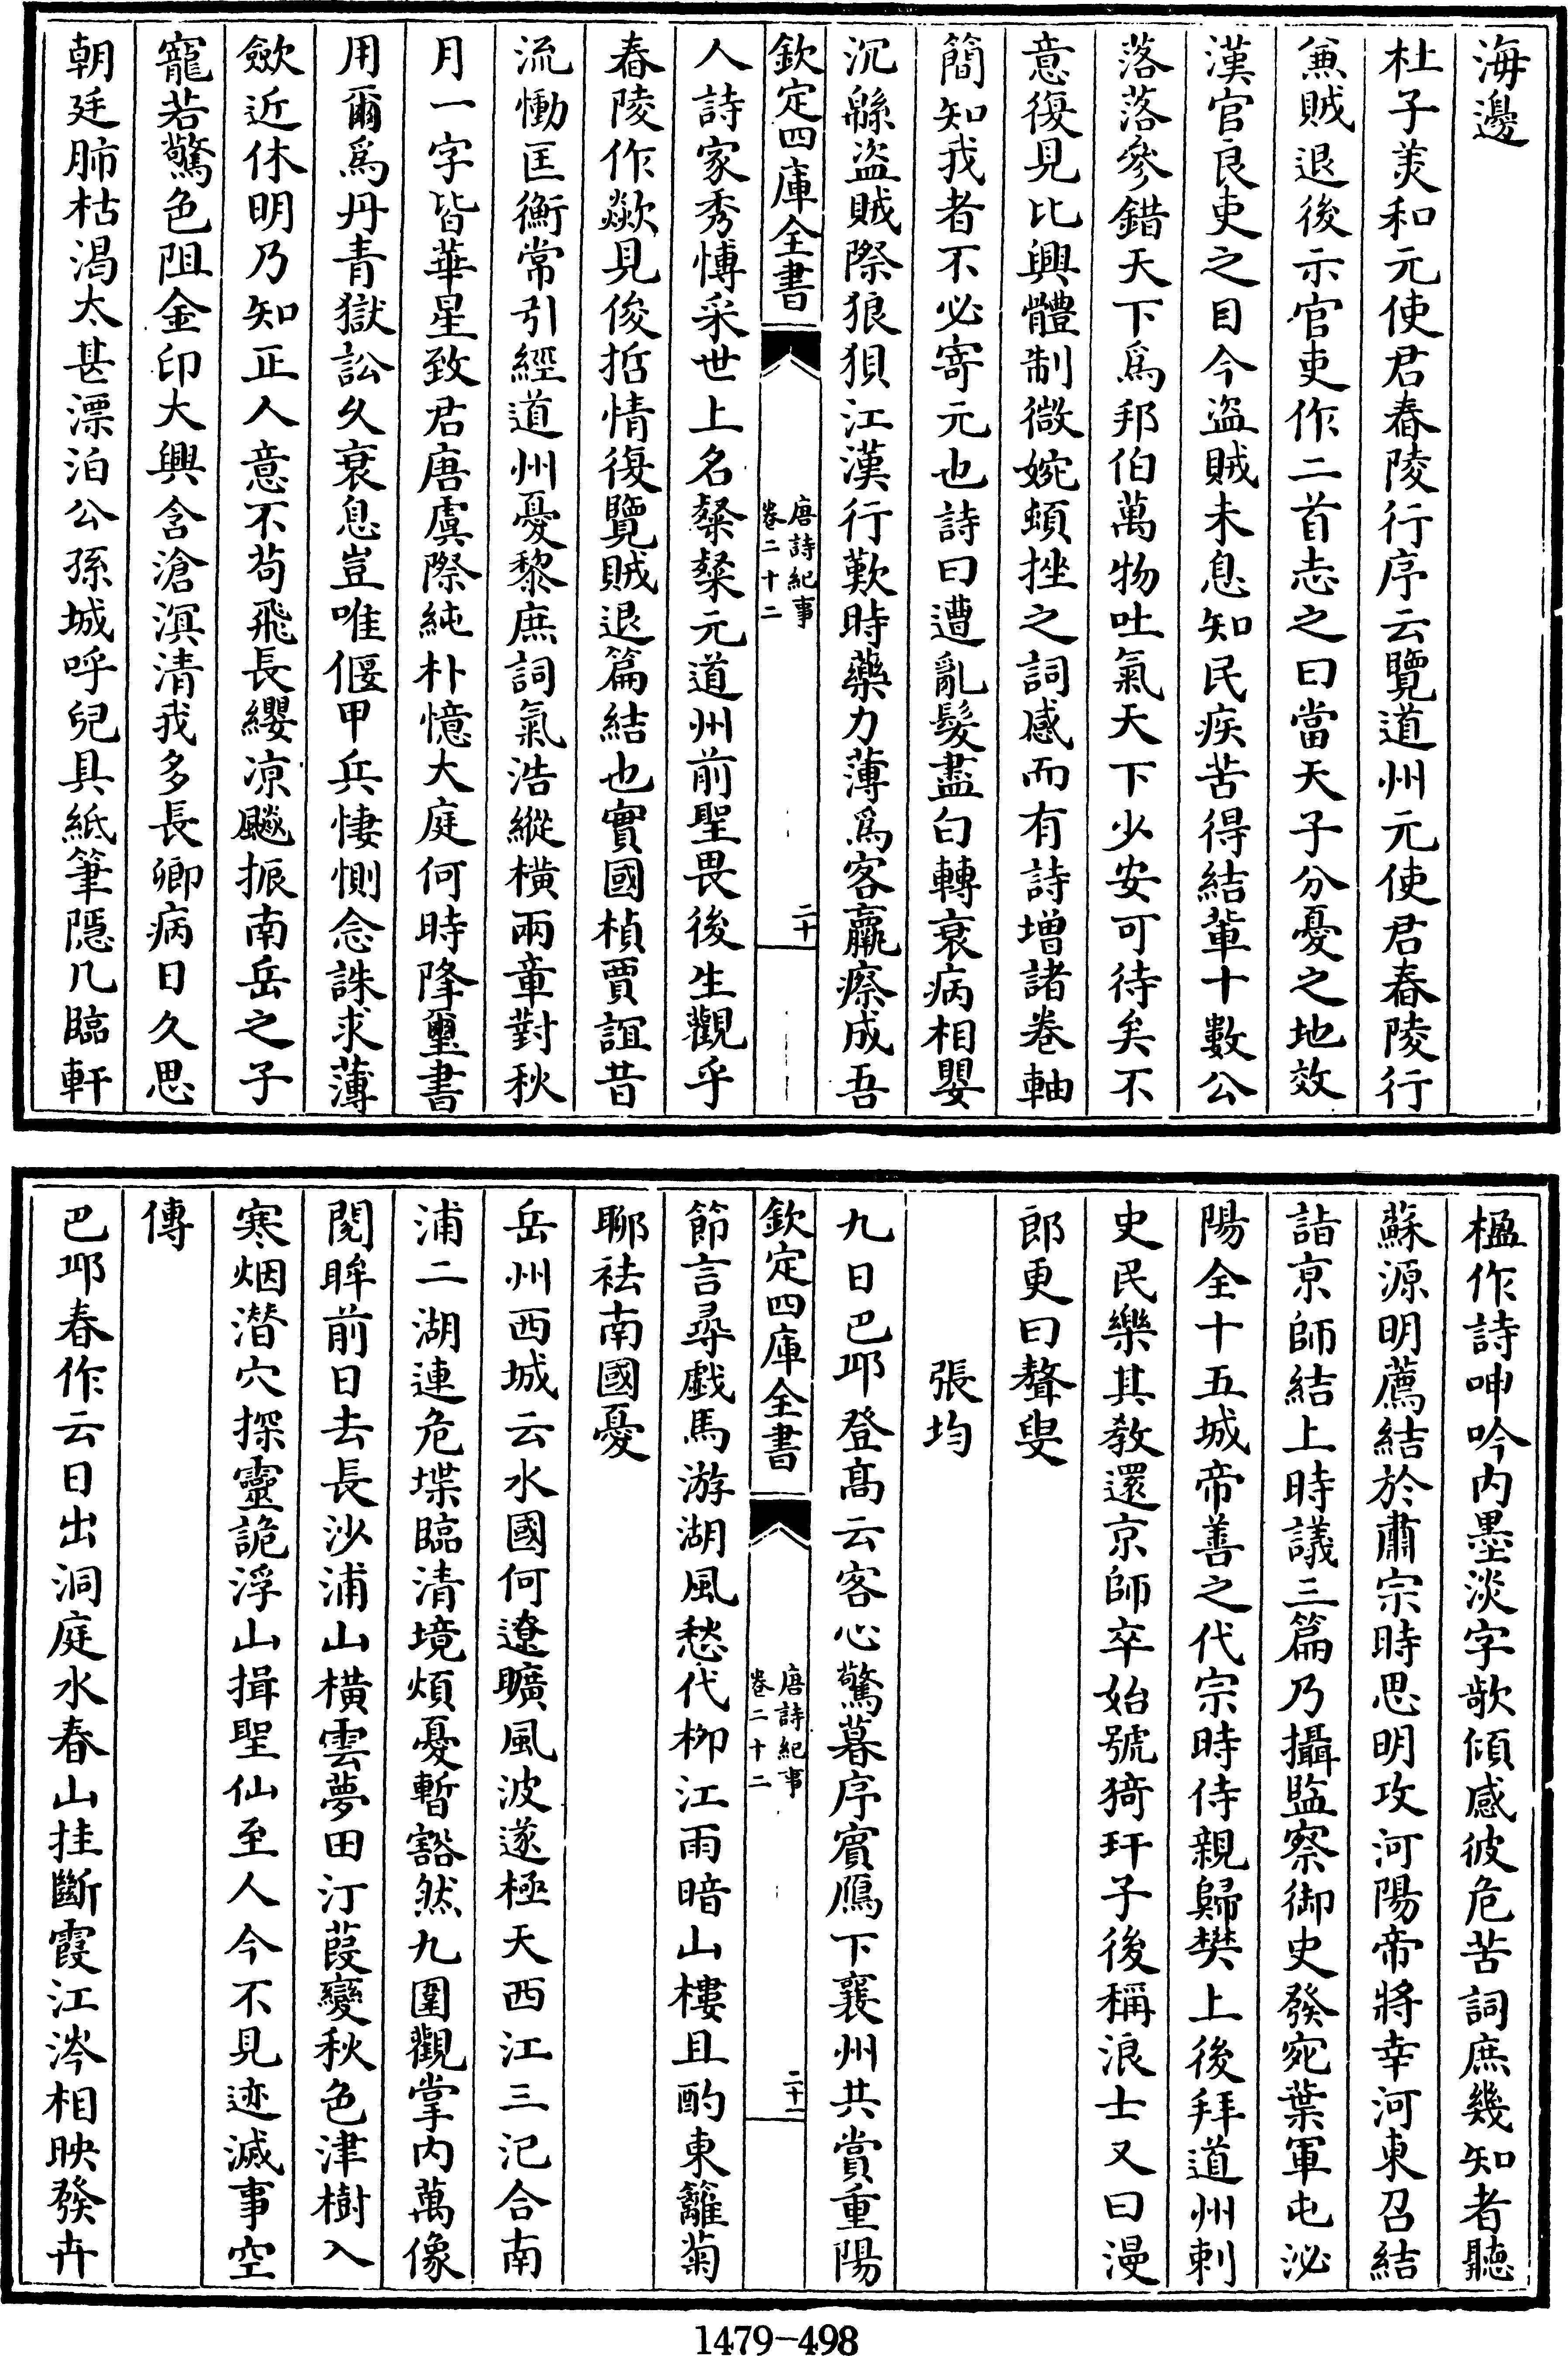 海邊
杜子美和元使君舂陵行序云覽道州元使君舂陵行
兼賊退後示官吏作二首志之曰當天子分憂之地效
漢官良吏之目今盜賊未息知民疾苦得結軰十數公
落落參錯天下爲邦伯萬物吐氣天下少安可待矣不
意復見比興體制微婉頓挫之詞感而有詩增諸卷軸
簡知我者不必寄元也詩曰遭亂髮盡白轉衰病相嬰
沉緜盜賊際狼狽江漢行歎時藥力薄爲客羸瘵成吾
欽定四庫全書
唐詩紀事
卷二十二
二十
人詩家秀博采世上名粲粲元道州前聖畏後生觀乎
舂陵作歘見俊哲情復覽賊退篇結也實國楨賈誼昔
流慟匡衡常引經道州憂黎庶詞氣浩縱橫兩章對秋
月一字皆華星致君唐虞際純朴憶大庭何時降璽書
用爾爲丹青獄訟久衰息豈唯偃甲兵悽惻念誅求薄
歛近休明乃知正人意不苟飛長纓凉飈振南岳之子
寵若驚色阻金印大興含滄溟清我多長卿病日久思
朝廷肺枯渴太甚漂泊公孫城呼兒具紙筆隱几臨軒
楹作詩呻吟内墨淡字欹傾感彼危苦詞庶幾知者聽
蘇源明薦結於肅宗時思明攻河陽帝將幸河東召結
詣京師結上時議三篇乃攝監察御史發宛葉軍屯泌
陽全十五城帝善之代宗時侍親歸樊上後拜道州刺
史民樂其教還京師卒始號猗玗子後稱浪士又曰漫
郎更曰聱叟
張均
九日巴邱登高云客心驚暮序賓鴈下襄州共賞重陽
欽定四庫全書
唐詩紀事
卷二十二
二十一
節言尋戱馬游湖風愁代柳江雨暗山樓且酌東籬菊
聊袪南國憂
岳州西城云水國何遼曠風波遂極天西江三汜合南
浦二湖連危堞臨清境煩憂暫豁然九圍觀掌内萬像
閱眸前日去長沙浦山橫雲夢田汀葭變秋色津樹入
寒烟潜穴探靈詭浮山揖聖仙至人今不見迹滅事空
傳
巴邱春作云日出洞庭水春山挂斷霞江涔相映發卉
1479-498